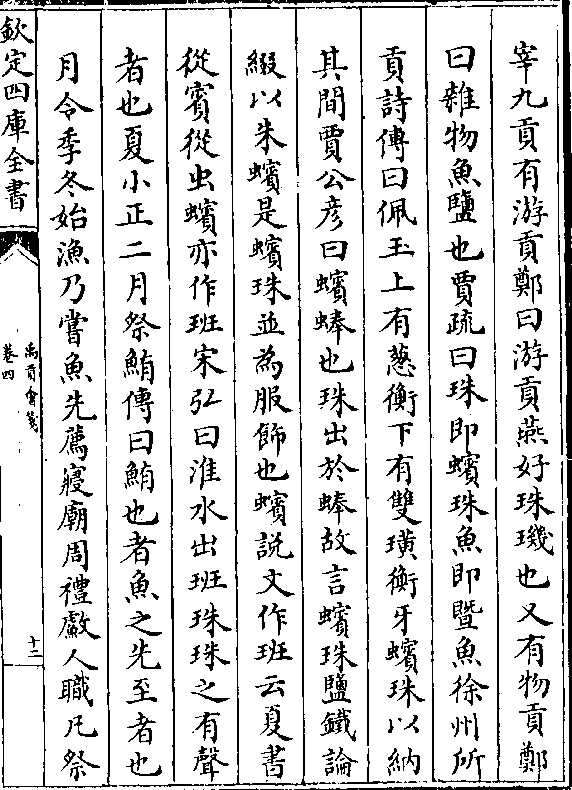 宰九貢有游貢鄭曰游貢燕好珠璣也又有物貢鄭
曰雜物魚鹽也賈疏曰珠即蠙珠魚即暨魚徐州所
貢詩傳曰佩玉上有蔥衡下有雙璜衡牙蠙珠以納
其間賈公彦曰蠙蜯也珠出於蜯故言蠙珠鹽鐵論
綴以朱蠙是蠙珠並為服飾也蠙説文作玭云夏書
從賓從虫蠙亦作玭宋弘曰淮水出玭珠珠之有聲
者也夏小正二月祭鮪傳曰鮪也者魚之先至者也
月令季冬始漁乃嘗魚先薦寢廟周禮䱷人職凡祭
欽定四庫全書
禹貢會箋
卷四
十二